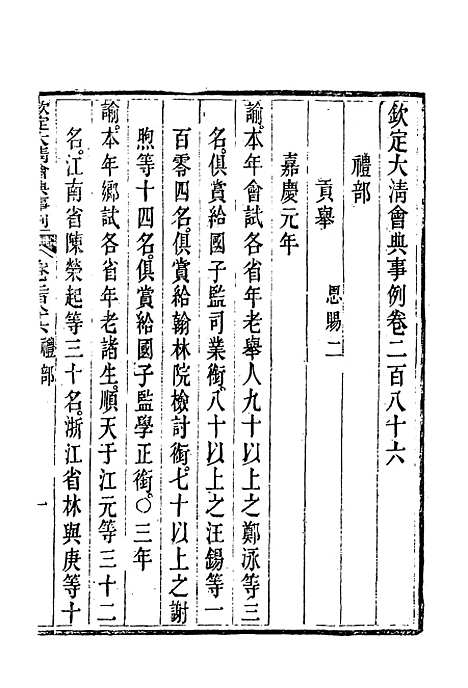 欽定大清會典事例卷二百八十六
禮部
貢舉 恩賜二
嘉慶元年
諭本年會試各省年老舉人九十以上之鄭泳等三
名俱賞給國子監司業銜八十以上之汪錫等一
百零四名俱賞給翰林院檢討銜七十以上之謝
煦等十四名俱賞給國子監學正銜○三年
諭本年鄉試各省年老諸生順天于江元等三十二
名江南省陳榮起等三十名浙江省林與庚等十
欽定大清會典事例 卷二百八十六 禮部 一